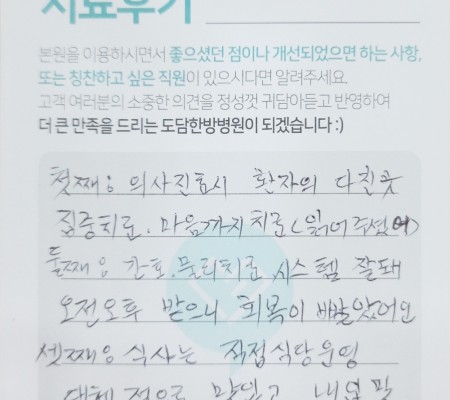 치료후기
본원을 이용하시면서 좋으셨던 점이나 개선되었으면 하는 사항,
또는 칭찬하고 싶은 직원이 있으시다면 알려주세요.
고객 여러분의 소중한 의견을 정성껏 귀담아듣고 반영하여
더 큰 만족을 드리는 도담한방병원이 되겠습니다 :)
첫째; 의사진료시 환자의 다친곳
집중치료. 마음까지 치료(읽어주셨어)
둘째; 간호.물리치료.시스템 잘돼
오전오후 받으니 회복이 빨랐어요
셋째; 식사는 직접식당운영
대체적으로 맛있고